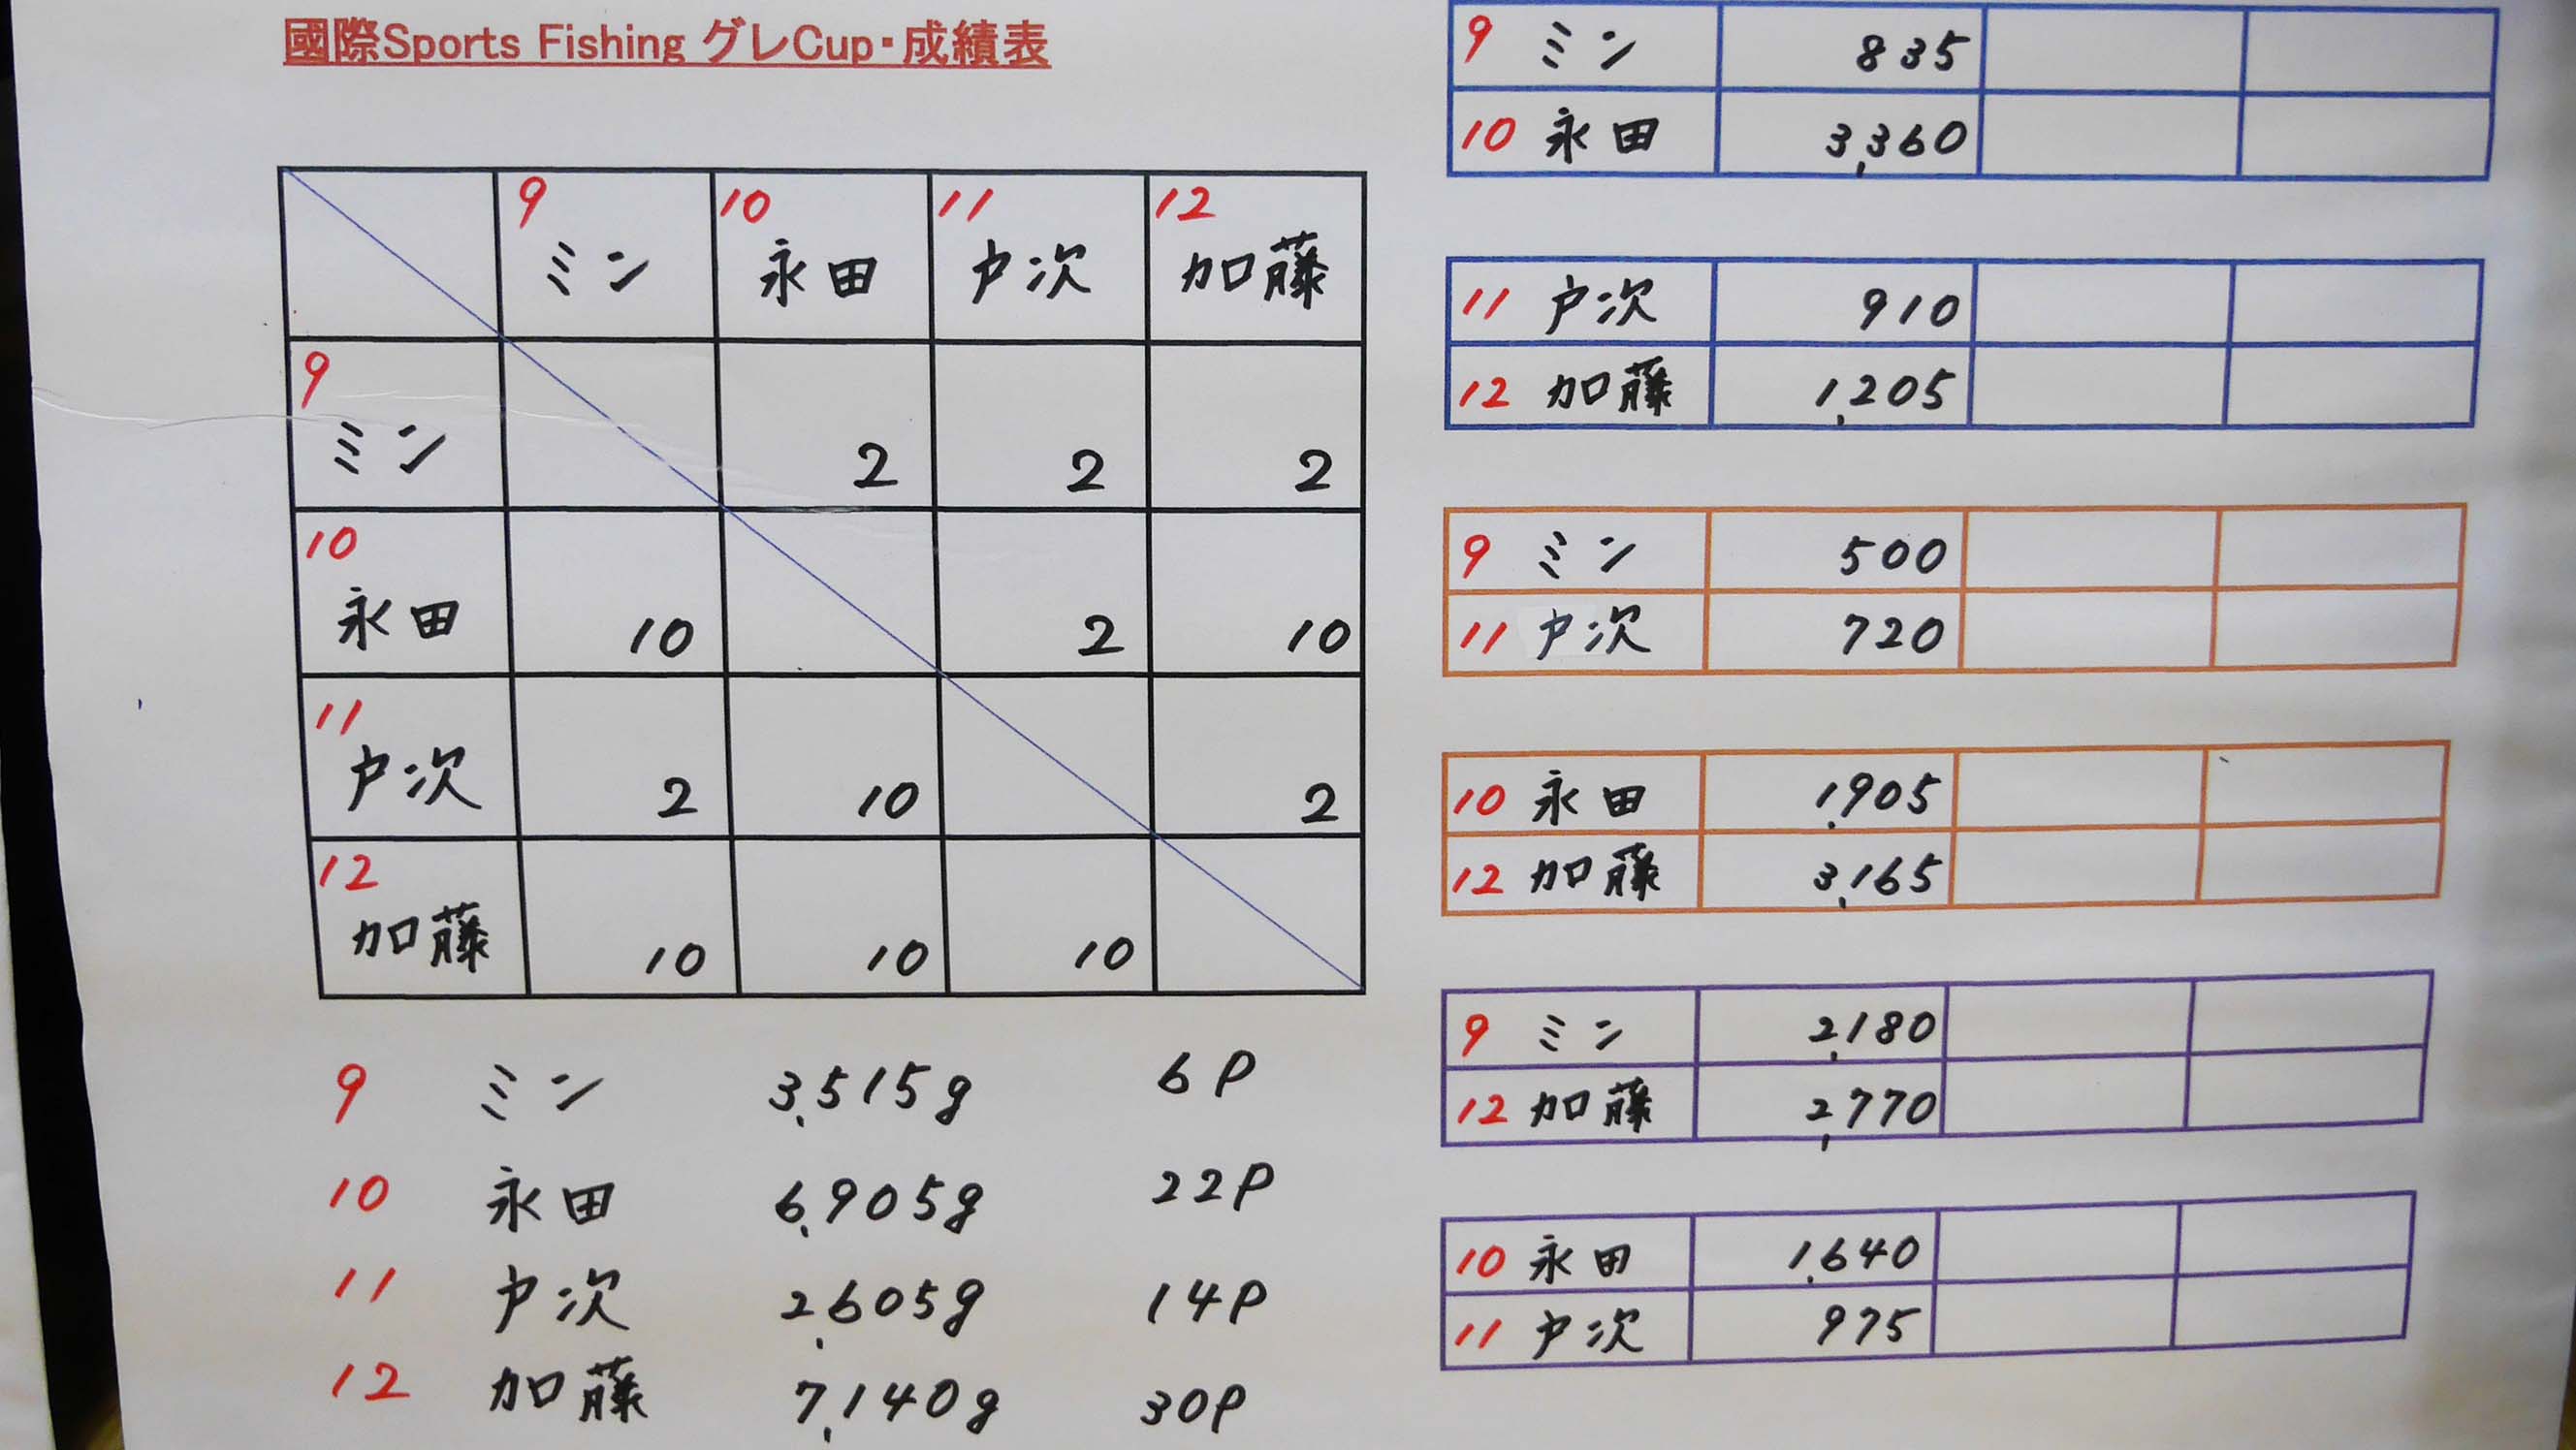 國際Sports Fishing グレCup・成績表
9 ミン 10 永田 11 戸次 12 加藤
9 ミン 2 2 2
10 永田 10 2 10
11 戸次 2 10 2
12 加藤 10 10 10
9 ミン 3,515g 6P
10 永田 6,905g 22P
11 戸次 2,605g 14P
12 加藤 7,140g 30P
9 ミン 835
10 永田 3,360
11 戸次 910
12 加藤 1,205
9 ミン 500
11 戸次 720
10 永田 1,905
12 加藤 3,165
9 ミン 2,180
12 加藤 2,770
10 永田 1,640
11 戸次 975